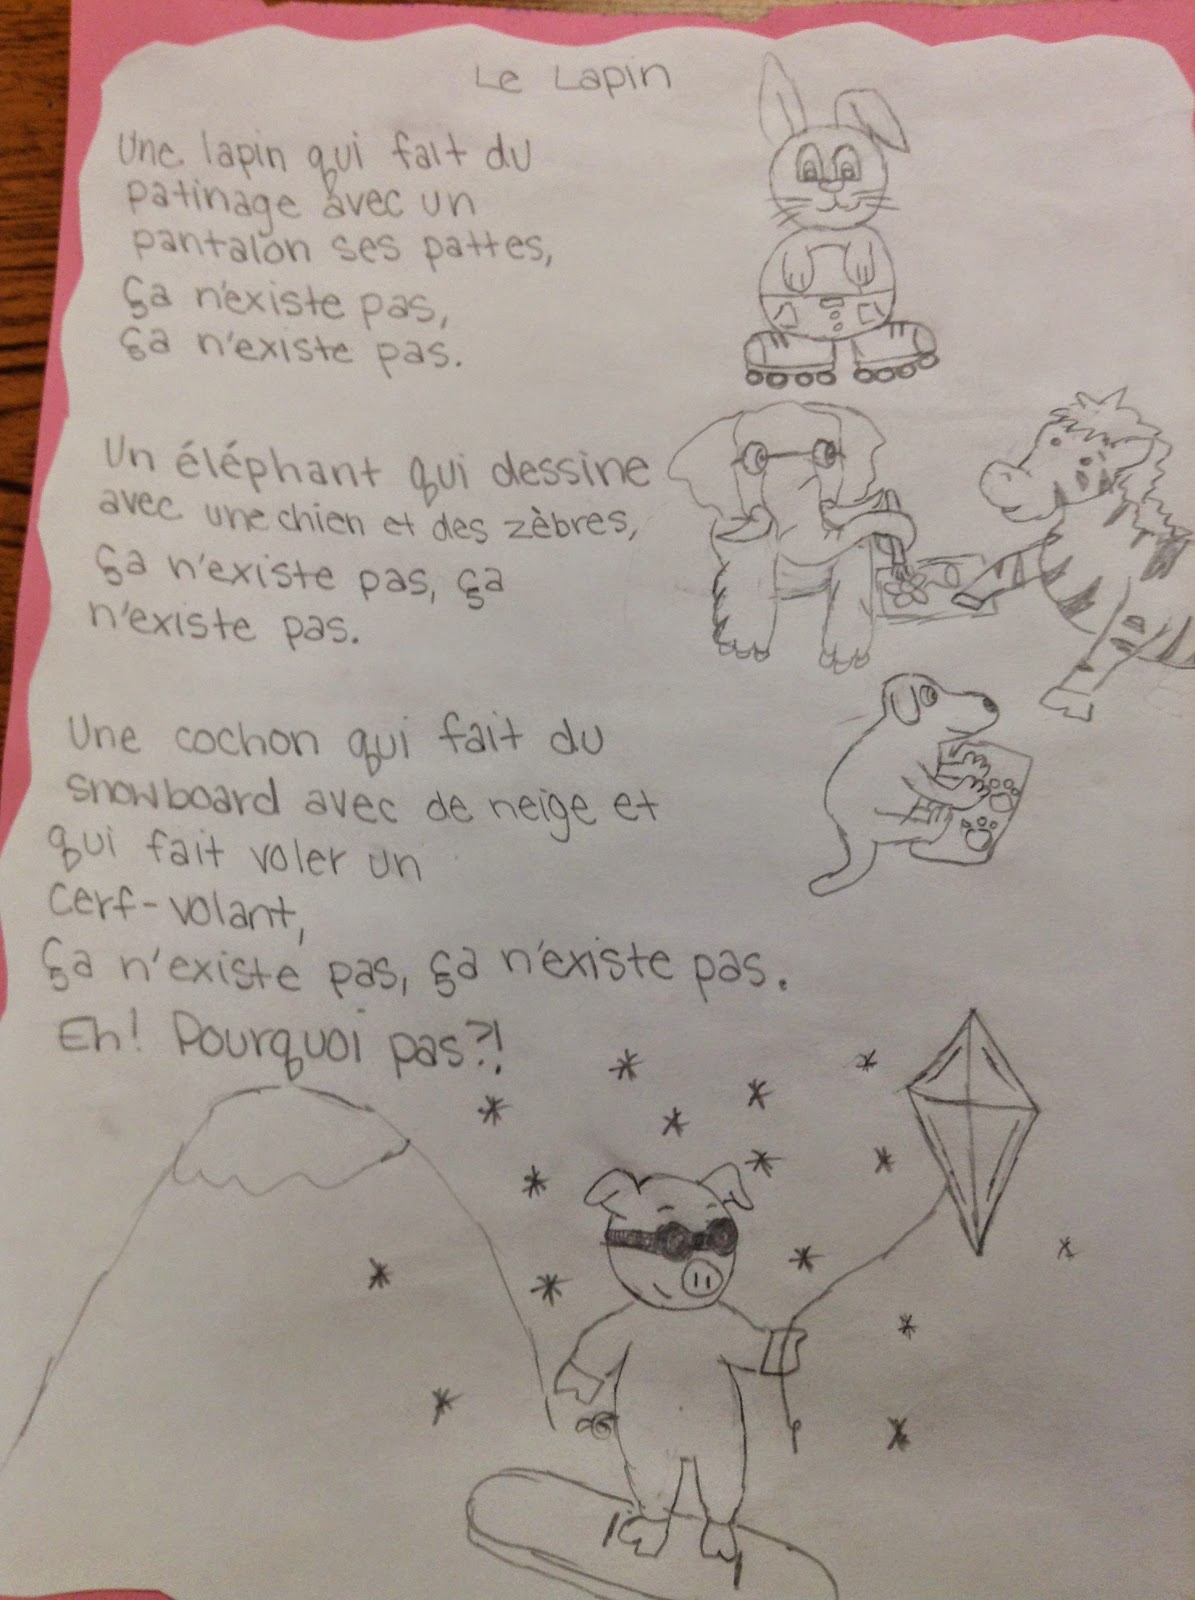 Le Lapin
Une lapin qui fait du
patinage avec un
pantalon ses pattes,
Ça n'existe pas,
Ça n'existe pas.
Un éléphant qui dessine
avec une chien et des zèbres,
Ça n'existe pas, ça
n'existe pas.
Une cochon qui fait du
snowboard avec de neige et
qui fait voler un
cerf-volant,
Ça n'existe pas, ça n'existe pas.
Eh! Pourquoi pas?!